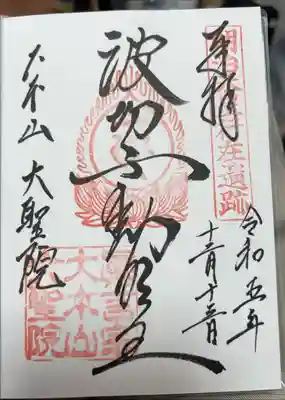 奉拝
令和五年
十二月十三日
波切不動明王
大本山 大聖院
大本山
大聖院